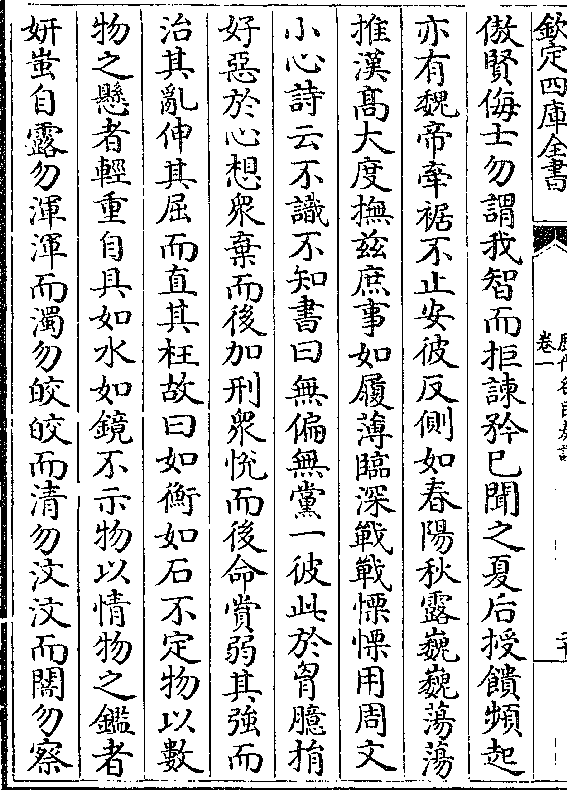 欽定四庫全書
卷一
傲賢侮士勿謂我智而拒諫矜已聞之夏后授饋頻起
亦有魏帝牽裾不止安彼反側如春陽秋露巍巍蕩蕩
推漢髙大度撫兹庶事如履薄臨深戰戰慄慄用周文
小心詩云不識不知書曰無偏無黨一彼此於胷臆捐
好惡於心想衆棄而後加刑衆悅而後命賞弱其強而
治其亂伸其屈而直其枉故曰如衡如石不定物以數
物之懸者輕重自具如水如鏡不示物以情物之鑑者
妍蚩自露勿渾渾而濁勿皎皎而清勿汶汶而闇勿察